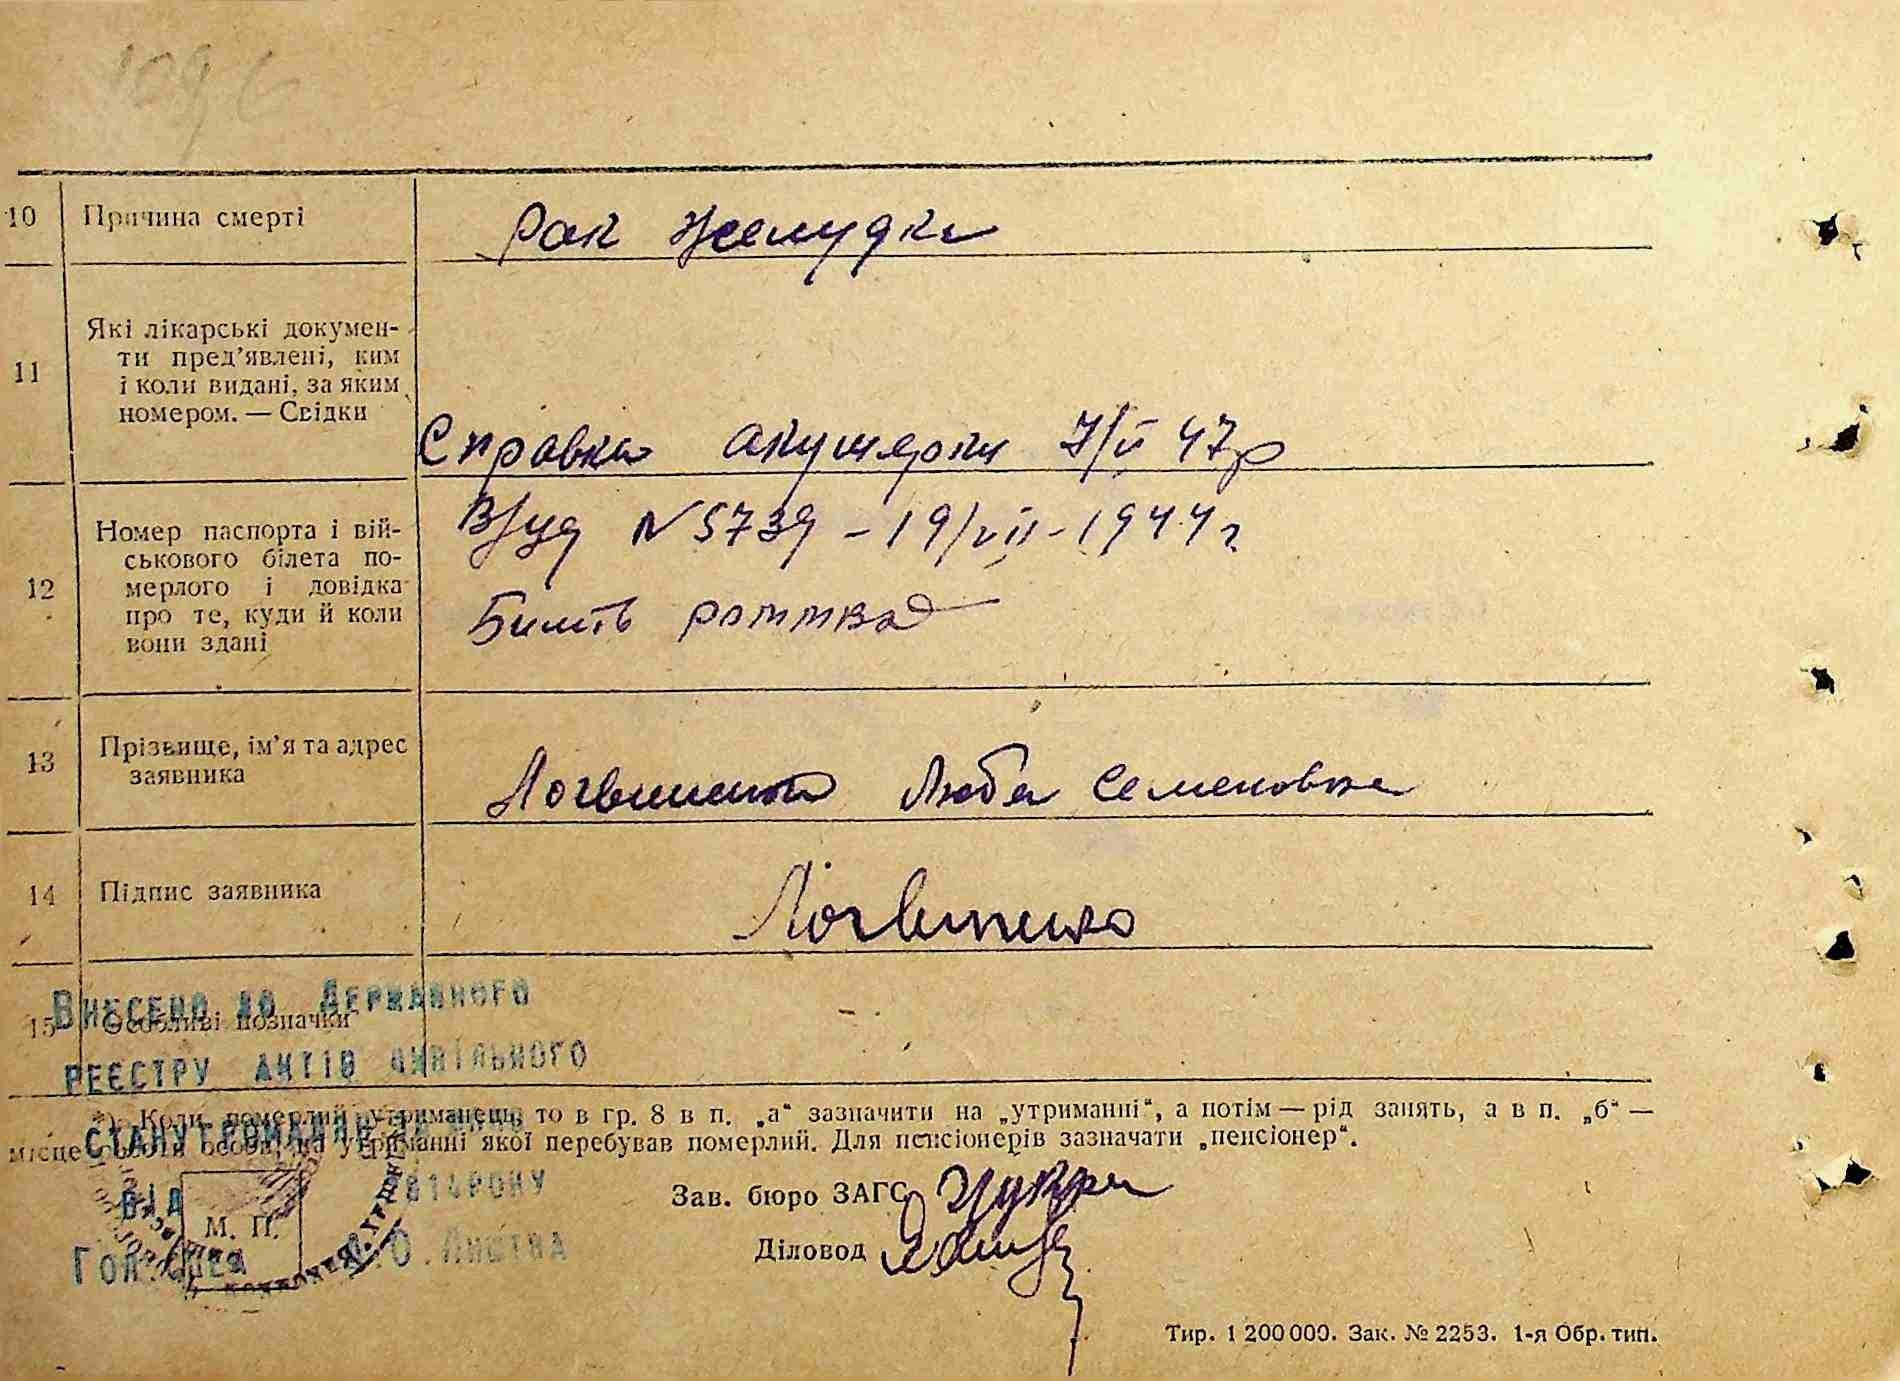 109
10
Причина смерті
Рак желудка
11
Які лікарські докумен-
ти пред’явлені, ким
і коли видані, за яким
номером. — Свідки
Справка акушерки 7/V 47р
12
Номер паспорта і вій-
ськового білета по-
мерлого і довідка
про те, куди й коли
вони здані
В/уд N 5739 - 19/VII - 1944 г
13
Прізвище, ім’я та адрес
заявника
Логвиненко Люба Семеновна
14
Підпис заявника
Логвиненко
15
Особливі позначки
Внесено до Державного
реєстру актів цивільного
стану громадян
від 814року
Гол.спец А.О.Листва
*) Коли померлий утриманець, то в гр. 8 в п. „а“ зазначити на „утриманні“, а потім — рід занять, а в п. „б“ —
місце роботи особи, на утриманні якої перебував померлий. Для пенсіонерів зазначати „пенсіонер“.
М. П.
Зав. бюро ЗАГС
Діловод
Тир. 1 200 000. Зак. № 2253. 1-я Обр. тип.